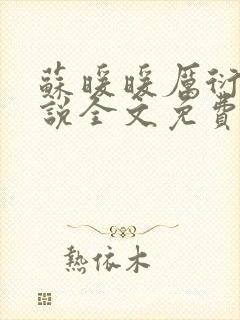 蘇暖暖厲衍
說全文免費
熱依木